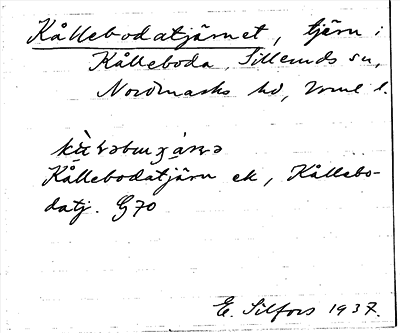 Kållebodatjärnet, tjärn i
Kålleboda, Silleruds sn,
Nordmarks hd, Vrml l.
Kållebodatjärn ek, Kållebo-
datj. G70
E. Silfors 1937.